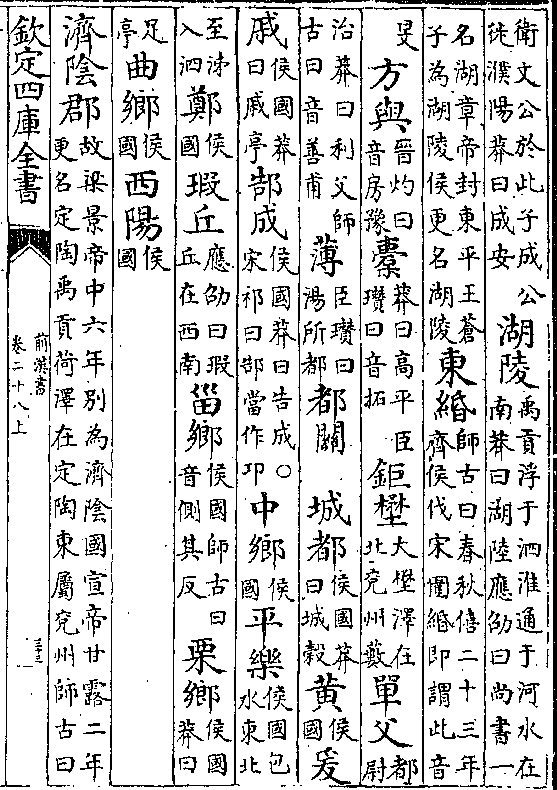 衛文公於此子成公徙濮陽莽曰成安湖陵禹貢浮于泗淮通于河水在南莽曰湖陸應劭曰尚書一
名湖章帝封東平王蒼子為湖陵侯更名湖陵東緡師古曰春秋僖二十三年齊侯伐宋圍緡即謂此音
旻方與晉灼曰音房豫橐莽曰高平臣瓚曰音拓鉅壄大壄澤在北兗州藪單父都尉
治莽曰利父師古曰音善甫薄臣瓚曰湯所都都關城都侯國莽曰城穀黃侯國爰
戚侯國莽曰戚亭郜成侯國莽曰告成○宋祁曰郜當作邛中鄉侯國平樂侯國包水東北
至泲入泗鄭侯國瑕丘應劭曰瑕丘在西南甾鄉侯國師古曰音側其反栗鄉侯國莽曰
足亭曲鄉侯國西陽侯國
濟陰郡故梁景帝中六年别為濟陰國宣帝甘露二年更名定陶禹貢荷澤在定陶東屬兗州師古曰
欽定四庫全書
前漢書
卷二十八上